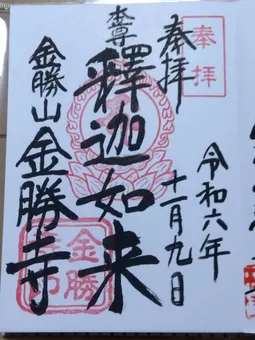 奉拝
奉拝
令和六年
十一月九日
本尊
釋迦如来
金勝山
金勝寺
金勝
寺印